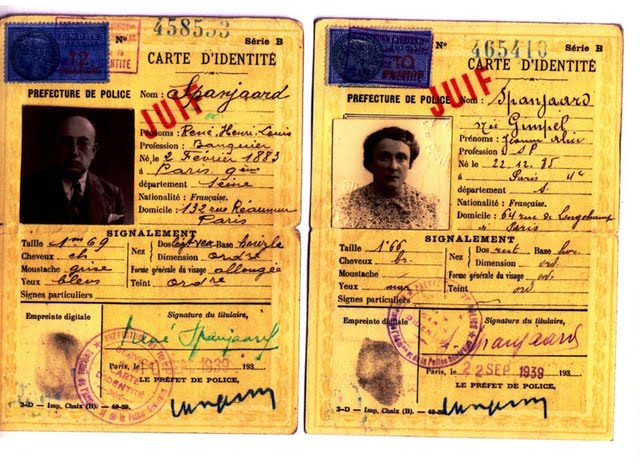 N° 458533 Série B
12
CARTE D'IDENTITÉ
PREFECTURE DE POLICE
JUIF
Nom : Spanjaard
Prénoms : René Henri Louis
Profession : Banquier
Né, le 2 Février 1883
à Paris 9ème
département Seine
Nationalité : Française.
Domicile : 132 rue Réaumur
Paris
SIGNALEMENT
Taille 1m 69
Cheveux ch
Moustache grise
Yeux bleus
Signes particuliers
Nez
Dos Base
Dimension ordre
Forme générale du visage allongée
Teint ordre
Empreinte digitale
Signature du titulaire,
René Spanjaard
CARTE D'IDENTITÉ
Paris, le 1939 193
LE PRÉFET DE POLICE,
3-D — Imp. Chaix (B). — 49-39.
N° Série B
10
CARTE D'IDENTITÉ
PREFECTURE DE POLICE
JUIF
Nom : Spanjaard
née Gimpel
Prénoms :
Profession S.P
Né le 22.12.85
à Paris
département S
Nationalité : Française.
Domicile : 64 rue de Longchamp
à Paris
SIGNALEMENT
Taille 1m66
Cheveux br.
Moustache
Yeux mar
Signes particuliers
Nez
Dos rect Base hor.
Dimension ord
Forme générale du visage ov.
Teint ord
Empreinte digitale
Signature du titulaire,
Spanjaard
Paris, le 22 SEP 1939 193
LE PRÉFET DE POLICE,
3-D — Imp. Chaix (B) — 49-39.